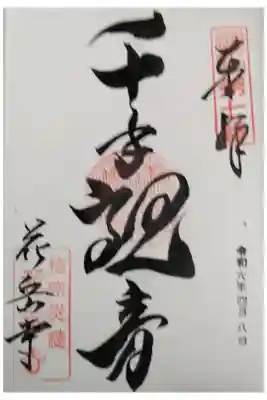 奉拝
令和六年四月八日
千手観音
花岳寺